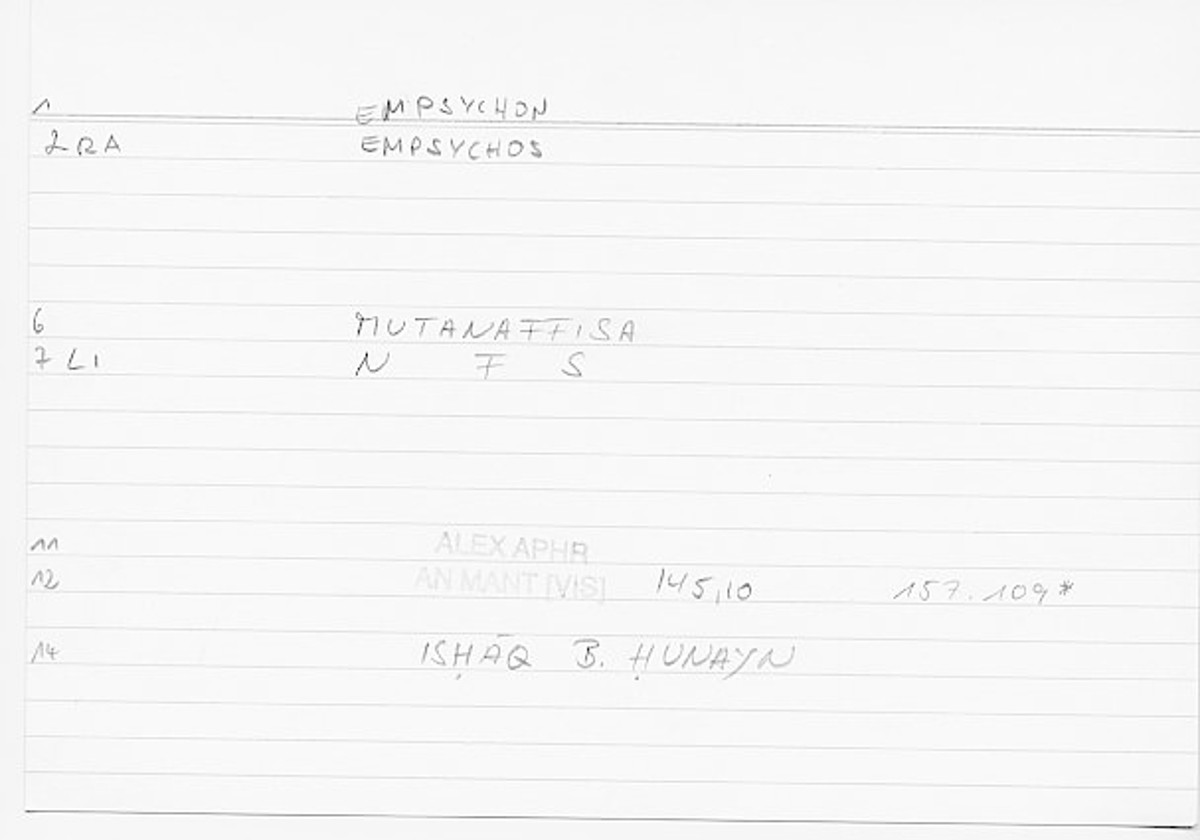 1 EMPSYCHON
2 RA EMPSYCHOS
6 MUTANAFFISA
7 LI N F S
11 ALEX APHR
12 AN MANT [VIS] 145,10 157.109*
14 ISḤĀQ B. ḤUNAYN